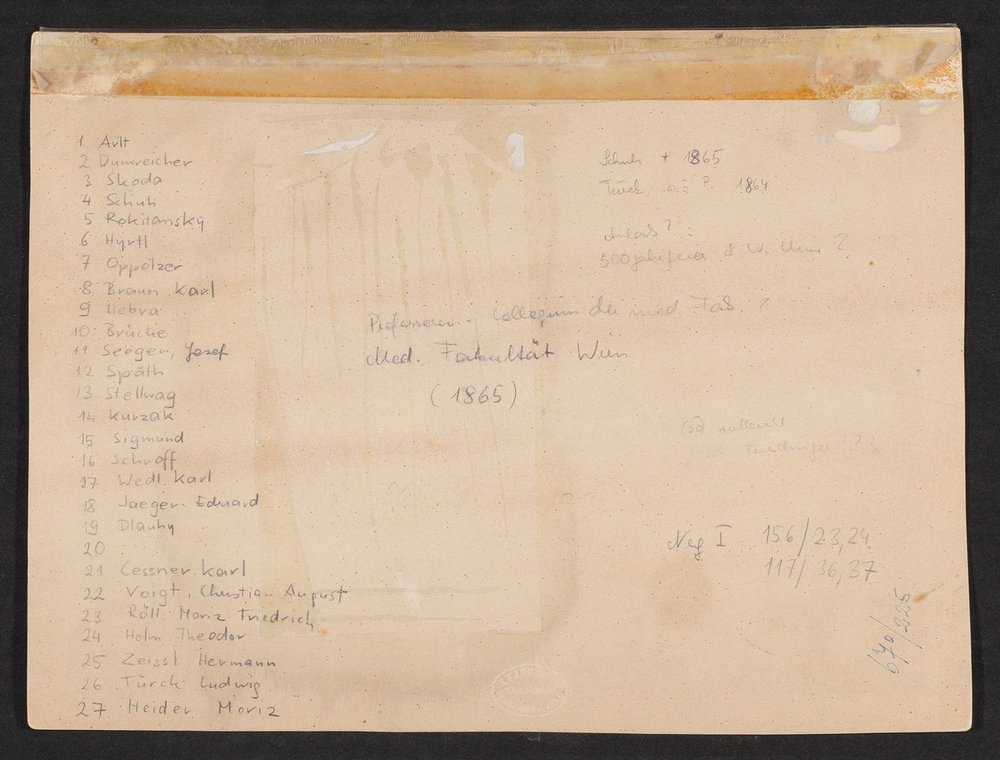 1 Arlt
2 Dumreicher
3 Skoda
4 Schuh
5 Rokitansky
6 Hyrtl
7 Oppolzer
8 Braun Karl
9 Hebra
10 Brücke
11 Seeger, Josef
12 Späth
13 Stellwag
14 Kurzak
15 Sigmund
16 Schroff
17 Wedl Karl
18 Jaeger Eduard
19 Dlauhy
20
21 Cessner Karl
22 Voigt, Christian August
23 Röll Moriz Friedrich
24 Helm Theodor
25 Zeissl Hermann
26 Türck Ludwig
27 Heider Moriz
Schuh + 1865
Türck ? 1864
500 Jahrfeier d W. ?
Professoren-Collegium der med Fas ?
Med. Fakultät Wien
(1865)
(20)
Neg I 156/23,24
117/36,37
670/225